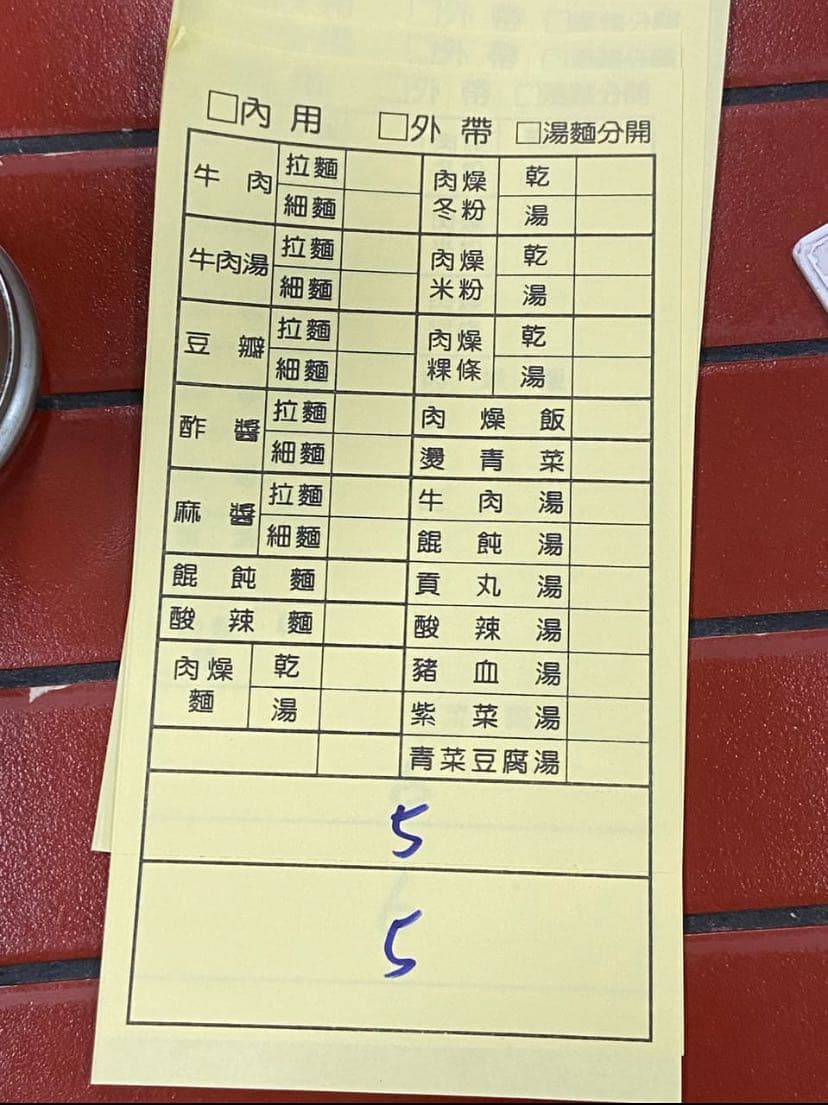 □內用 □外帶 □湯麵分開
牛肉 拉麵
細麵
牛肉湯 拉麵
細麵
豆瓣 拉麵
細麵
酢醬 拉麵
細麵
麻醬 拉麵
細麵
餛飩麵
酸辣麵
肉燥麵 乾
湯
肉燥冬粉 乾
湯
肉燥米粉 乾
湯
肉燥粿條 乾
湯
肉燥飯
燙青菜
牛肉湯
餛飩湯
貢丸湯
酸辣湯
豬血湯
紫菜湯
青菜豆腐湯
5
5